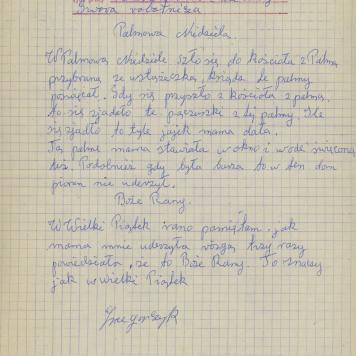 Palmowa Niedziela.
W Palmowa Niedziele szło się do kościoła z Palmą
przybraną ze wstążeczka, ksiądz te palmy
poświęcał. Gdy się przyszło z kościoła z palmą.
to się zjadło te pączuszki z tej palmy. Ile
się zjadło to tyle jajek mama dała.
Tą palme mama stawiała w okno i wode święconą
też. Podobnież gdy była burza to w ten dom
piorun nie uderzył.
Boże Rany.
W Wielki Piątek rano pamiętam, jak
mama mnie uderzyła rózgą trzy razy
powiedziała, że to Boże Rany. To znaczy
jak w wielki Piątek
Grzegorczyk